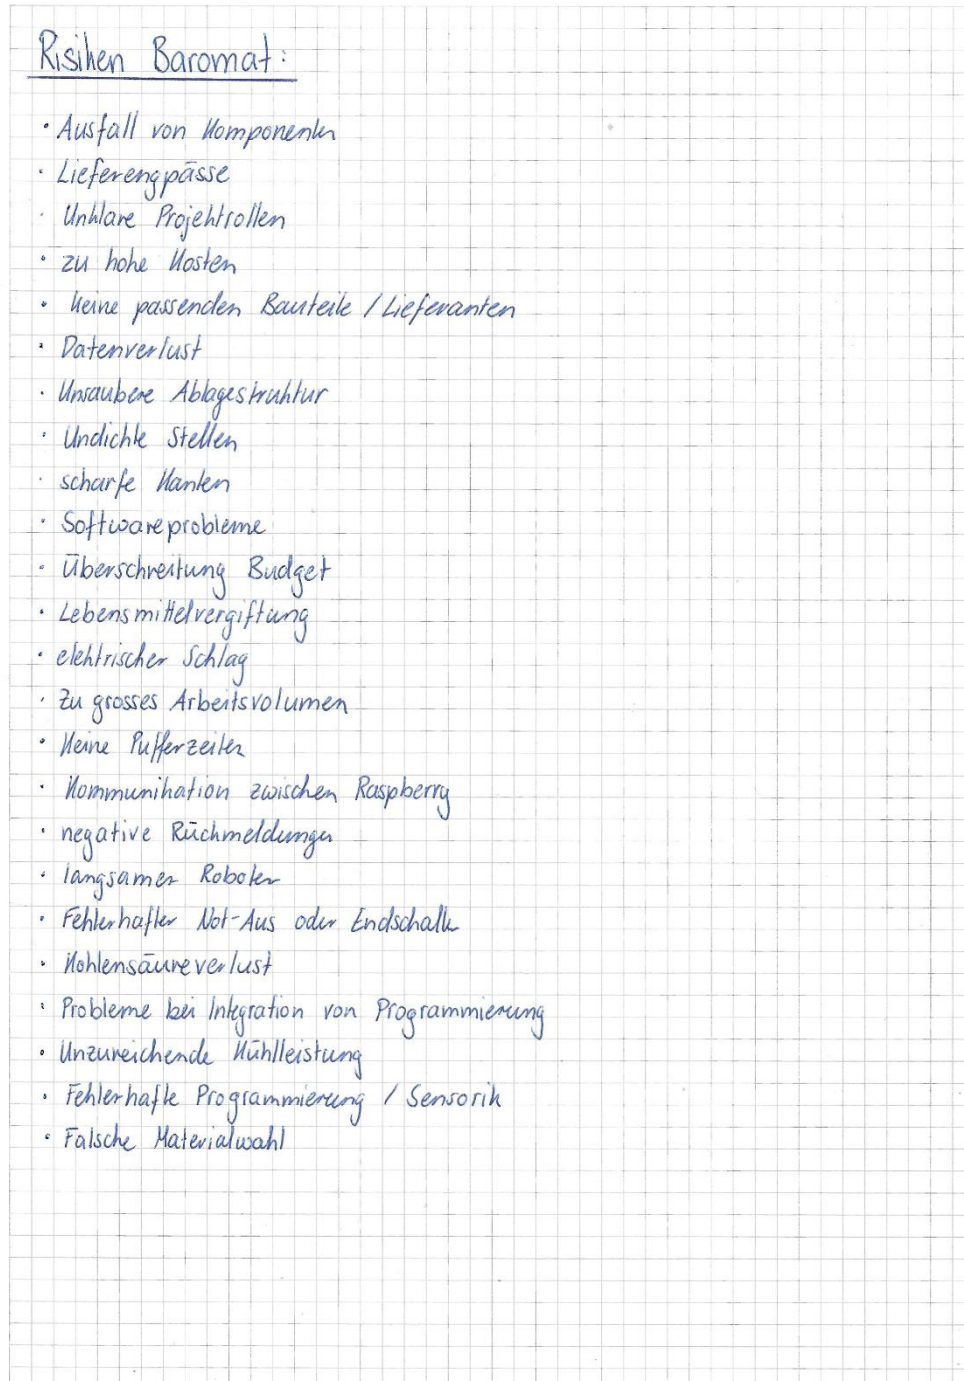 Risiken Baromat:
· Ausfall von Komponenten
· Lieferengpässe
· Unklare Projektrollen
· zu hohe Kosten
· Keine passenden Bauteile / Lieferanten
· Datenverlust
· Unsaubere Ablagestruktur
· Undichte Stellen
· scharfe Kanten
· Softwareprobleme
· Überschreitung Budget
· Lebensmittelvergiftung
· elektrischer Schlag
· Zu grosses Arbeitsvolumen
· Keine Pufferzeiten
· Kommunikation zwischen Raspberry
· negative Rückmeldungen
· langsamer Roboter
· Fehlerhafter Not-Aus oder Endschalter
· Kohlensäureverlust
· Probleme bei Integration von Programmierung
· Unzureichende Kühlleistung
· Fehlerhafte Programmierung / Sensorik
· Falsche Materialwahl